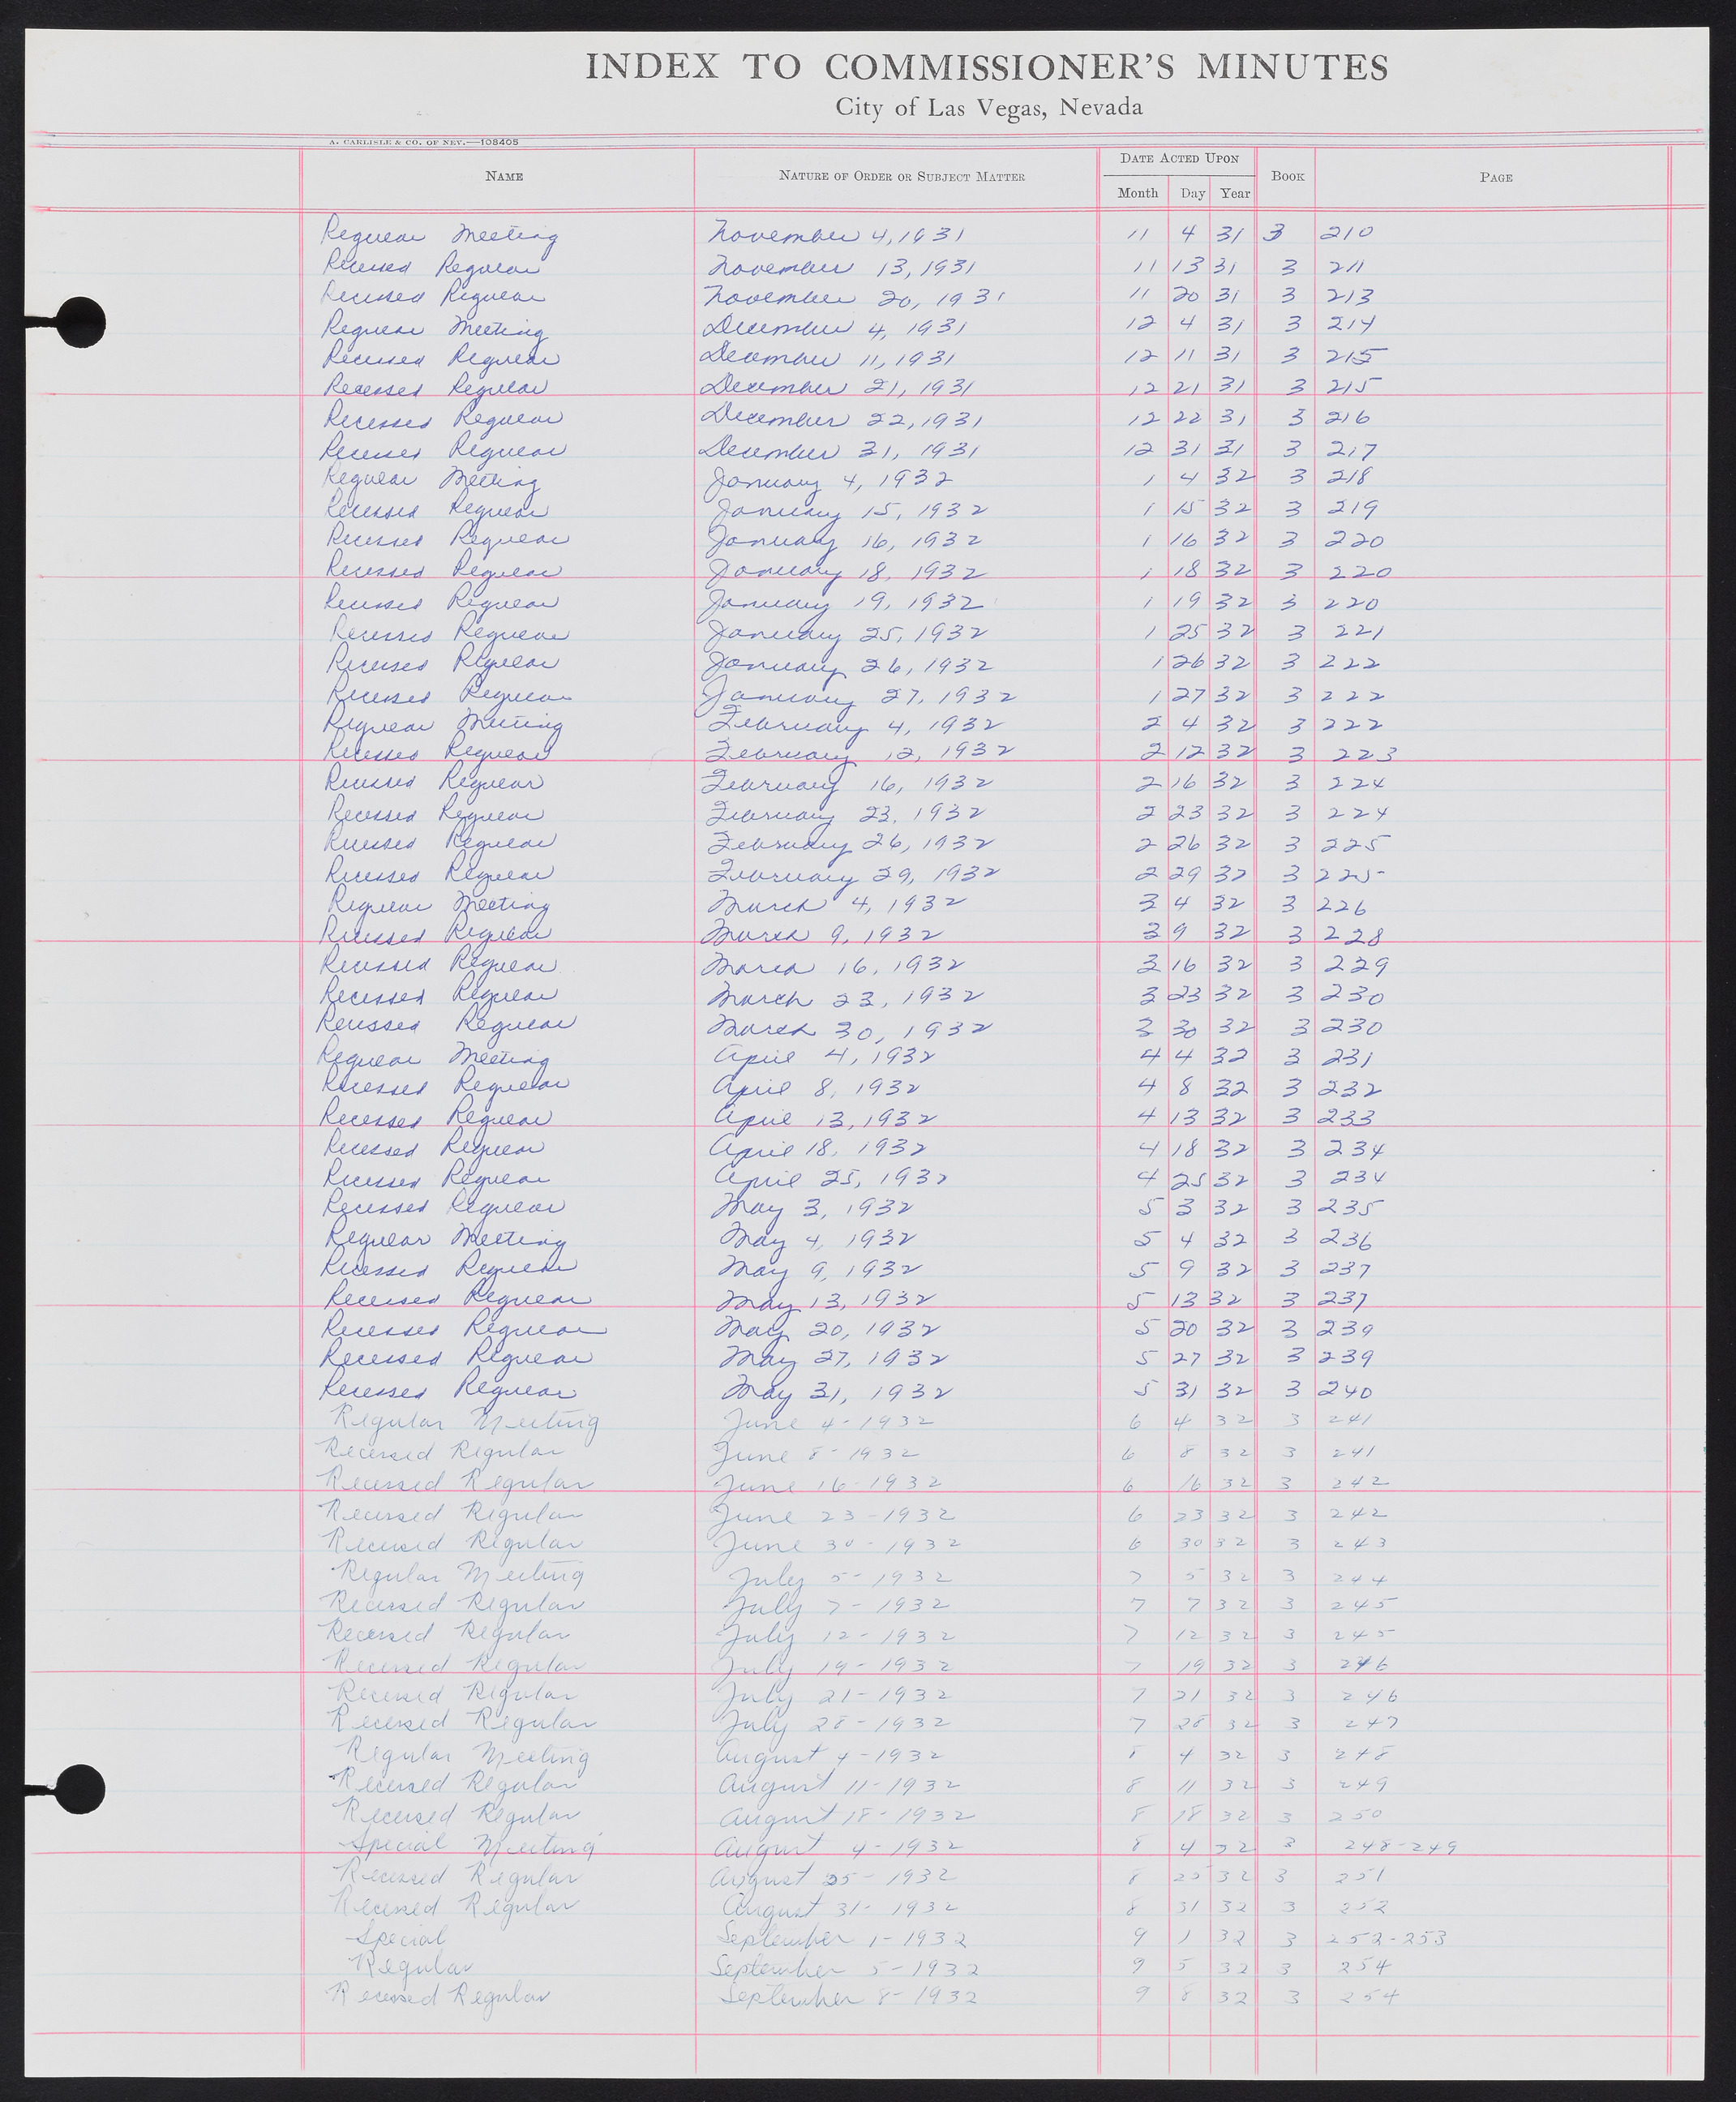 INDEX TO COMMISSIONER'S MINUTES
City of Las Vegas, Nevada
A. CARLISLE & CO. OF NEV.—108405
NAME NATURE OF ORDER OR SUBJECT MATTER DATE ACTED UPON BOOK PAGE
Month Day Year
Regular Meeting November 4, 1931 11 4 31 3 210
Recessed Regular November 13, 1931 11 13 31 3 211
Recessed Regular November 20, 1931 11 20 31 3 213
Regular Meeting December 4, 1931 12 4 31 3 214
Recessed Regular December 11, 1931 12 11 31 3 215
Recessed Regular December 21, 1931 12 21 31 3 215
Recessed Regular December 22, 1931 12 22 31 3 216
Recessed Regular December 31, 1931 12 31 31 3 217
Regular Meeting January 4, 1932 1 4 32 3 218
Recessed Regular January 15, 1932 1 15 32 3 219
Recessed Regular January 16, 1932 1 16 32 3 220
Recessed Regular January 18, 1932 1 18 32 3 220
Recessed Regular January 19, 1932 1 19 32 3 220
Recessed Regular January 25, 1932 1 25 32 3 221
Recessed Regular January 26, 1932 1 26 32 3 222
Recessed Regular January 27, 1932 1 27 32 3 222
Regular Meeting February 4, 1932 2 4 32 3 222
Recessed Regular February 12, 1932 2 12 32 3 223
Recessed Regular February 16, 1932 2 16 32 3 224
Recessed Regular February 23, 1932 2 23 32 3 224
Recessed Regular February 26, 1932 2 26 32 3 225
Recessed Regular February 29, 1932 2 29 32 3 225
Regular Meeting March 4, 1932 3 4 32 3 226
Recessed Regular March 9, 1932 3 9 32 3 228
Recessed Regular March 16, 1932 3 16 32 3 229
Recessed Regular March 23, 1932 3 23 32 3 230
Recessed Regular March 30, 1932 3 30 32 3 230
Regular Meeting April 4, 1932 4 4 32 3 231
Recessed Regular April 8, 1932 4 8 32 3 232
Recessed Regular April 13, 1932 4 13 32 3 233
Recessed Regular April 18, 1932 4 18 32 3 234
Recessed Regular April 25, 1932 4 25 32 3 234
Recessed Regular May 3, 1932 5 3 32 3 235
Regular Meeting May 4, 1932 5 4 32 3 236
Recessed Regular May 9, 1932 5 9 32 3 237
Recessed Regular May 13, 1932 5 13 32 3 237
Recessed Regular May 20, 1932 5 20 32 3 239
Recessed Regular May 27, 1932 5 27 32 3 239
Recessed Regular May 31, 1932 5 31 32 3 240
Regular Meeting June 4-1932 6 4 32 3 241
Recessed Regular June 8-1932 6 8 32 3 241
Recessed Regular June 16-1932 6 16 32 3 242
Recessed Regular June 23-1932 6 23 32 3 242
Recessed Regular June 30-1932 6 30 32 3 243
Regular Meeting July 5-1932 7 5 32 3 244
Recessed Regular July 7-1932 7 7 32 3 245
Recessed Regular July 12-1932 7 12 32 3 245
Recessed Regular July 19-1932 7 19 32 3 246
Recessed Regular July 21-1932 7 21 32 3 246
Recessed Regular July 28-1932 7 28 32 3 247
Regular Meeting August 4-1932 8 4 32 3 248
Recessed Regular August 11-1932 8 11 32 3 249
Recessed Regular August 18-1932 8 18 32 3 250
Special Meeting August 4-1932 8 4 32 3 248-249
Recessed Regular August 25-1932 8 25 32 3 251
Recessed Regular August 31-1932 8 31 32 3 252
Special September 1-1932 9 1 32 3 252-253
Regular September 5-1932 9 5 32 3 254
Recessed Regular September 8-1932 9 8 32 3 254